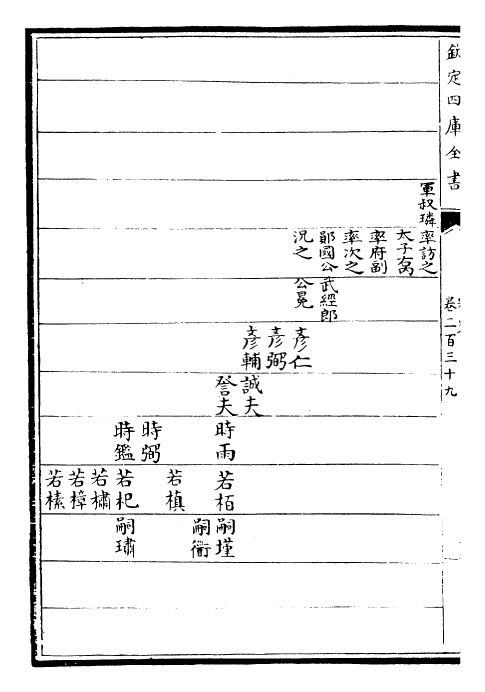 欽定四庫全書
卷二百三十九
軍叔璘
率訪之
太子右内
率府副
率次之
鄖國公
況之
武經郎
公冕
彥仁
彥弼
彥輔
誠夫
詧夫
時雨
時弼
時鑑
若栢
若槙
若杞
若橚
若樟
若榛
嗣瑾
嗣衜
嗣璛